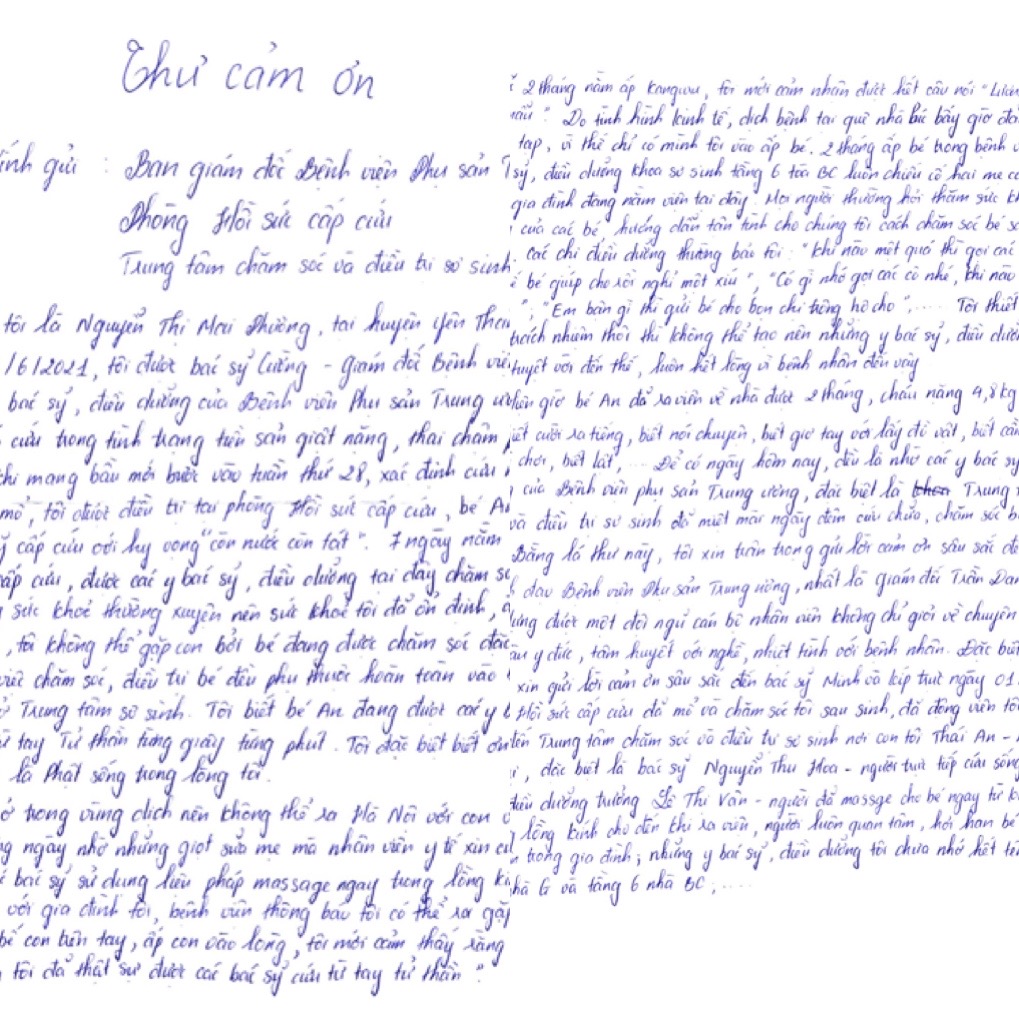 Thư cảm ơn
ính gửi : Ban giám đốc Bệnh viện Phụ sản T
Phòng Hồi sức cấp cứu
Trung tâm chăm sóc và điều trị sơ sinh
tôi là Nguyễn Thị Mai Phường, tại huyện Yên The
/6/2021, tôi được bác sỹ Cường - Giám đốc Bệnh vi
bác sỹ, điều dưỡng của Bệnh viện Phụ sản Trung ư
cứu trong tình trạng tiền sản giật nặng, thai chậm
khi mang bầu mới bước vào tuần thứ 28, xác định cứu
mổ, tôi được điều trị tại phòng Hồi sức cấp cứu, bé A
cấp cứu với hy vọng "còn nước còn tát". 7 ngày nằm
cấp cứu, được các y bác sỹ, điều dưỡng tại đây chăm só
sức khoẻ thường xuyên nên sức khoẻ tôi đã ổn định,
, tôi không thể gặp con bởi bé đang được chăm sóc đặc
việc chăm sóc, điều trị bé đều phụ thuộc hoàn toàn vào
ở Trung tâm sơ sinh. Tôi biết bé An đang được các y b
từ tay Tử thần từng giây từng phút. Tôi đặc biệt biết ơn
là Phật sống trong lòng tôi.
ở trong vùng dịch nên không thể ra Hà Nội với con
ngày nhờ những giọt sữa mẹ mà nhân viên y tế xin
bác sỹ sử dụng liệu pháp massage ngay trong lồng kí
với gia đình tôi, bệnh viện thông báo tôi có thể ra gặ
bế con trên tay, ấp con vào lòng, tôi mới cảm thấy rằng
tôi đã thật sự được các bác sỹ cứu từ tay tử thần"
2 tháng nằm ấp Kanguru, tôi mới cảm nhận được hết câu nói "Lươn
mẫu". Do tình hình kinh tế, dịch bệnh tại quê nhà lúc bấy giờ đa
tạp, vì thế chỉ có mình tôi vào ấp bé. 2 tháng ấp bé trong bệnh v
sỹ, điều dưỡng khoa sơ sinh tầng 6 tòa BC luôn chiều cô hai mẹ co
gia đình đang nằm viện tại đây. Mọi người thường hỏi thăm sức k
của các bé, hướng dẫn tận tình cho chúng tôi cách chăm sóc bé s
các chị điều dưỡng thường bảo tôi: "Khi nào mệt quá thì gọi các
bé giúp cho rồi nghỉ một xíu", "Có gì nhớ gọi các cô nhé, khi nào
", "Em bận gì thì gửi bé cho bọn chị trông hộ cho",.... Tôi thiết
trách nhiệm thôi thì không thể tạo nên những y bác sỹ, điều dưỡ
huyết với đến thế, luôn hết lòng vì bệnh nhân đến vậy
hiện giờ bé An đã ra viện về nhà được 2 tháng, cháu nặng 4,8kg
biết cười ra tiếng, biết nói chuyện, biết giơ tay với lấy đồ vật, biết cầ
chơi, biết lật,... Để có ngày hôm nay, đều là nhờ các y bác sỹ
của Bệnh viện phụ sản Trung ương, đặc biệt là Trung
và điều trị sơ sinh đã miệt mài ngày đêm cứu chữa, chăm sóc b
Bằng lá thư này, tôi xin trân trọng gửi lời cảm ơn sâu sắc đế
đạo Bệnh viện Phụ sản Trung ương, nhất là giám đốc Trần Dan
ựng được một đội ngũ cán bộ nhân viên không chỉ giỏi về chuyên
y đức, tâm huyết với nghề, nhiệt tình với bệnh nhân. Đặc biệ
xin gửi lời cảm ơn sâu sắc đến bác sỹ Minh và kíp trực ngày 01
Hồi sức cấp cứu đã mổ và chăm sóc tôi sau sinh, đã động viên tô
đến Trung tâm chăm sóc và điều trị sơ sinh nơi con tôi Thái An -
, đặc biệt là bác sỹ Nguyễn Thu Hoa - người trực tiếp cứu sống
điều dưỡng trưởng Lê Thị Vân - người đã massge cho bé ngay từ k
lồng kính cho đến khi ra viện, người luôn quan tâm, hỏi han bé
trong gia đình; những y bác sỹ, điều dưỡng tôi chưa nhớ hết tê
nhà G và tầng 6 nhà BC;....